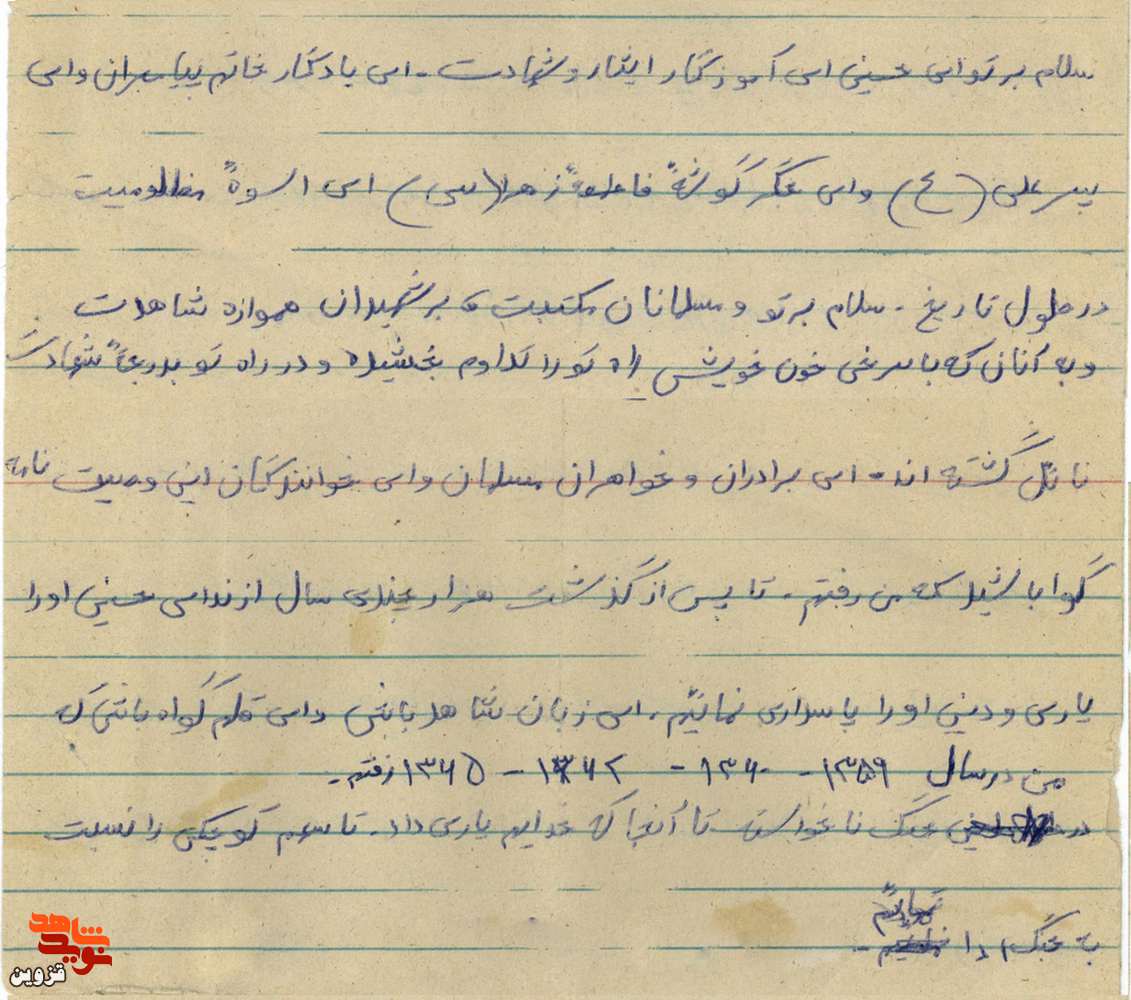 سلام بر تو ای حسین ای آموزگار ایثار و شهادت - ای یادگار خاتم پیامبران و ای
پسر علی (ع) و ای جگر گوشهٔ فاطمهٔ زهرا (س) ای اسوهٔ مظلومیت
در طول تاریخ - سلام بر تو و مسلمانان مکتبت و بر شهیدان همواره شاهدت
و به آنان که با سرخی خون خویش راه تو را تداوم بخشیده و در راه تو بدرجهٔ شهادت
نائل گشته اند - ای برادران و خواهران مسلمان و ای خوانندگان این وصیت نامه
گواه باشید که من رفتم - تا پس از گذشت هزار و چندی سال از ندای حسین او را
یاری و دین او را پاسداری نمائیم، ای زبان شاهد باش و ای قلم گواه باش که
من در سال ۱۳۵۹ - ۱۳۶۰ - ۱۳۶۲ - ۱۳۶۵ رفتم -
در جنگ ناخواسته تا آنجا که خدایم یاری داد - تا سهم کوچکی را نسبت
به جنگ ادا نمایم -
شاهد
نوید
قزوین